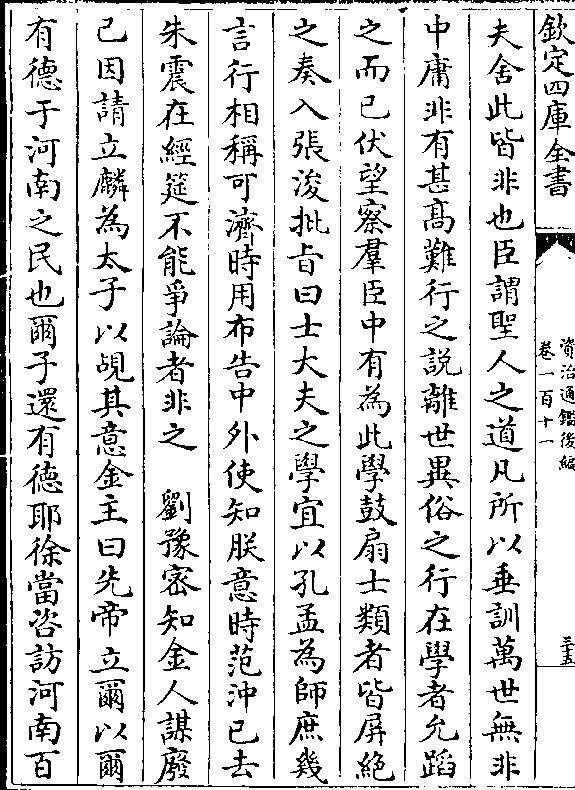 欽定四庫全書
資治通鑑後編
卷一百十一
三十五
夫舍此皆非也臣謂聖人之道凡所以垂訓萬世無非
中庸非有甚髙難行之說離世異俗之行在學者允蹈
之而已伏望察羣臣中有為此學鼓扇士類者皆屏絶
之奏入張浚批旨曰士大夫之學宜以孔孟為師庶幾
言行相稱可濟時用布告中外使知朕意時范沖已去
朱震在經筵不能爭論者非之　劉豫宻知金人謀廢
己因請立麟為太子以覘其意金主曰先帝立爾以爾
有德于河南之民也爾子還有德耶徐當咨訪河南百